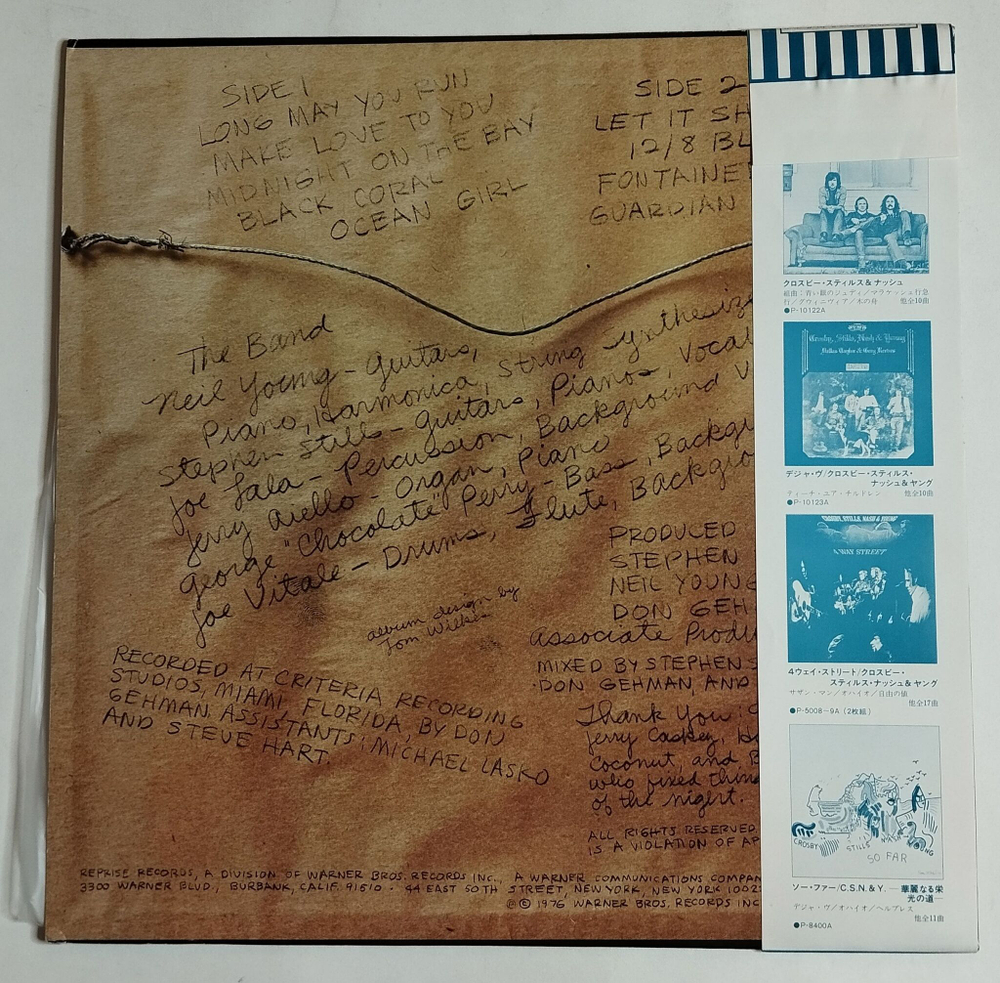 SIDE 1
LONG MAY YOU RUN
MAKE LOVE TO YOU
MIDNIGHT ON THE BAY
BLACK CORAL
OCEAN GIRL
SIDE 2
LET IT SH
12/8 BL
FONTAINE
GUARDIAN
The Band
Neil Young - Guitars,
Piano, Harmonica, String Synthesize
Stephen Stills - Guitars, Pianos, Vocal
Joe Lala - Percussion, Background V
Jerry Aiello - Organ, Piano
George "Chocolate" Perry - Bass, Backgr
Joe Vitale - Drums, Flute, Backgro
album design by
Tom Wilkes
RECORDED AT CRITERIA RECORDING
STUDIOS, MIAMI, FLORIDA, BY DON
GEHMAN. ASSISTANTS: MICHAEL LASKO
AND STEVE HART.
PRODUCED
STEPHEN
NEIL YOUNG
DON GEH
Associate Produ
MIXED BY STEPHEN S
DON GEHMAN, AND
Thank You:
Jerry Caskey,
Coconut, and B
who fixed thin
of the night.
ALL RIGHTS RESERVED
IS A VIOLATION OF AP
REPRISE RECORDS, A DIVISION OF WARNER BROS. RECORDS INC., A WARNER COMMUNICATIONS COMPAN
3300 WARNER BLVD., BURBANK, CALIF. 91510 · 44 EAST 50TH STREET, NEW YORK, NEW YORK 1002
℗ © 1976 WARNER BROS. RECORDS INC
クロスビー・スティルス&ナッシュ
組曲:青い眼のジュディ/マラケッシュ行急
行/グウィニヴィア/木の舟 他全10曲
●P-10122A
Crosby, Stills, Nash & Young
Dallas Taylor & Greg Reeves
デジャ・ヴ/クロスビー・スティルス・
ナッシュ&ヤング
ティーチ・ユア・チルドレン 他全10曲
●P-10123A
CROSBY, STILLS, NASH & YOUNG
4 WAY STREET
4ウェイ・ストリート/クロスビー・
スティルス・ナッシュ&ヤング
サザン・マン/オハイオ/自由の値
他全17曲
●P-5008~9A (2枚組)
CROSBY STILLS NASH YOUNG
SO FAR
ソー・ファー/C.S.N.&Y. ―華麗なる栄
光の道―
デジャ・ヴ/オハイオ/ヘルプレス
他全11曲
●P-8400A